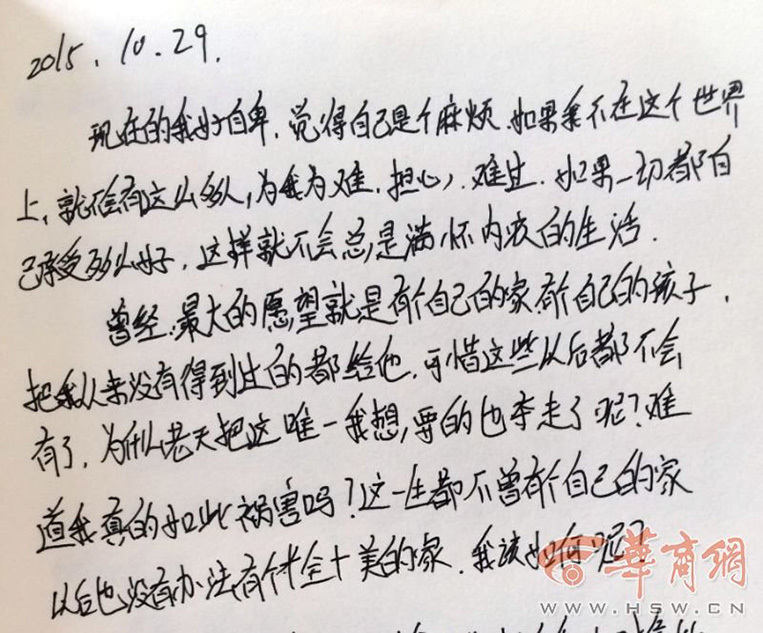 2015.10.29.
现在的我好自卑.觉得自己是个麻烦.如果我不在这个世界
上,就不会有这么多人,为我为难.担心,难过.如果一切都自
己承受多么好,这样就不会总是满怀内疚的生活.
曾经.最大的愿望就是有个自己的家.有个自己的孩子.
把我从来没有得到过的都给他.可惜这些以后都不会
有了.为什么老天把这唯一我想,要的也夺走了呢?难
道我真的如此祸害吗?这一生都不曾有个自己的家
以后也没有办法有个十全十美的家.我该如何呢?
華商網
WWW.HSW.CN